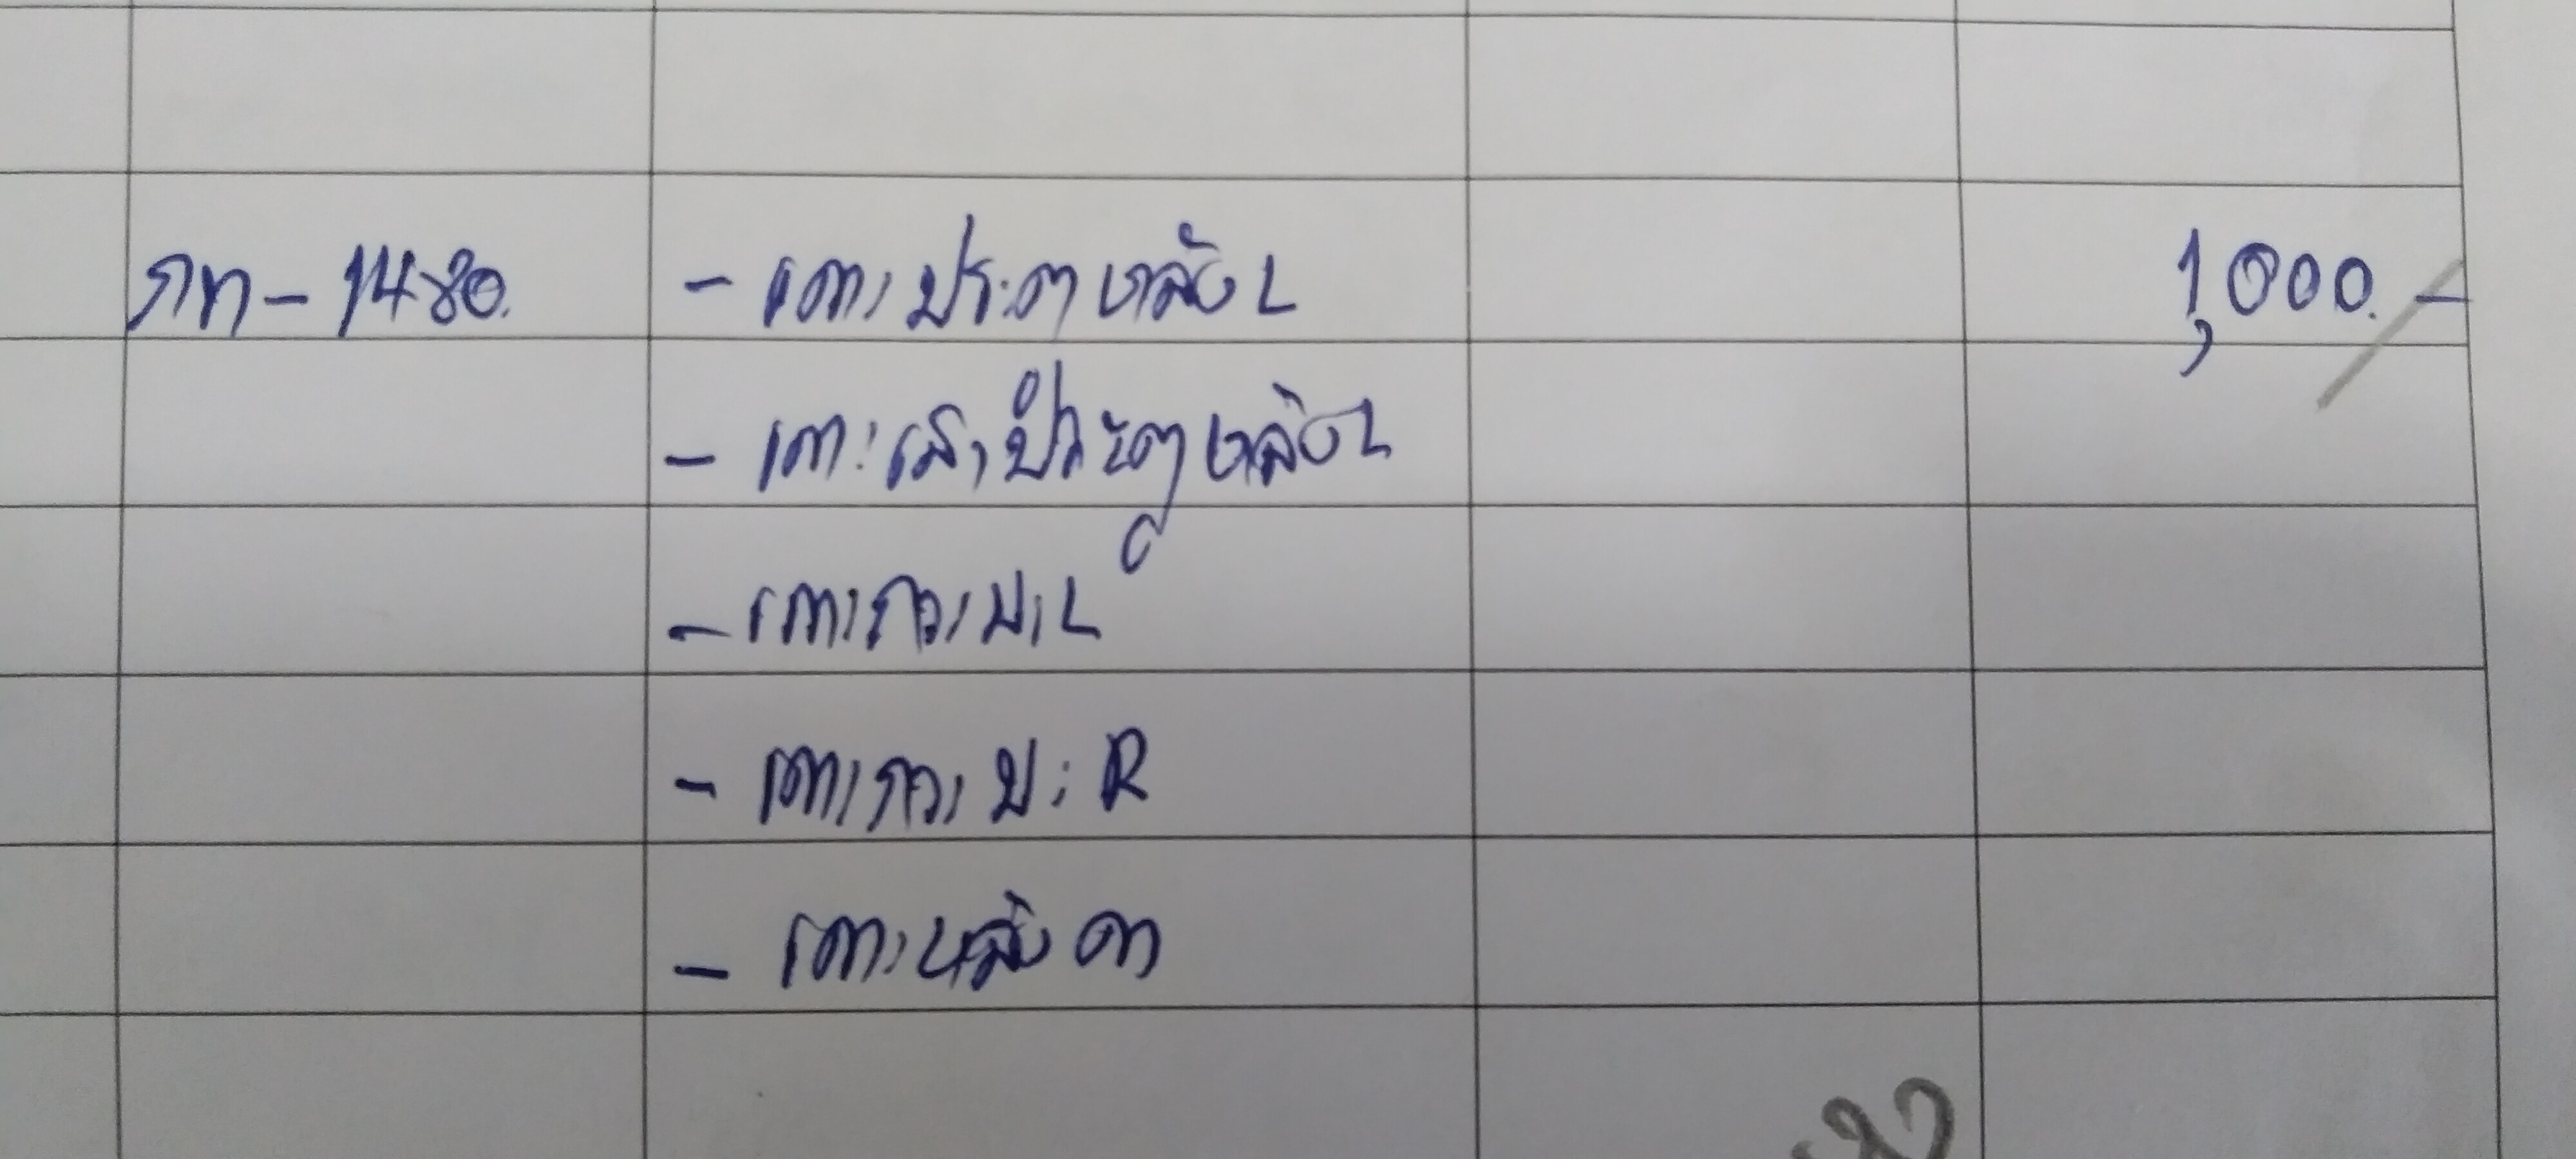 กท - 1480. - เคาะประตูหลัง L 1,000.-
- เคาะเสาประตูหลัง L
- เคาะกระบะ L
- เคาะกระบะ R
- เคาะหลังคา